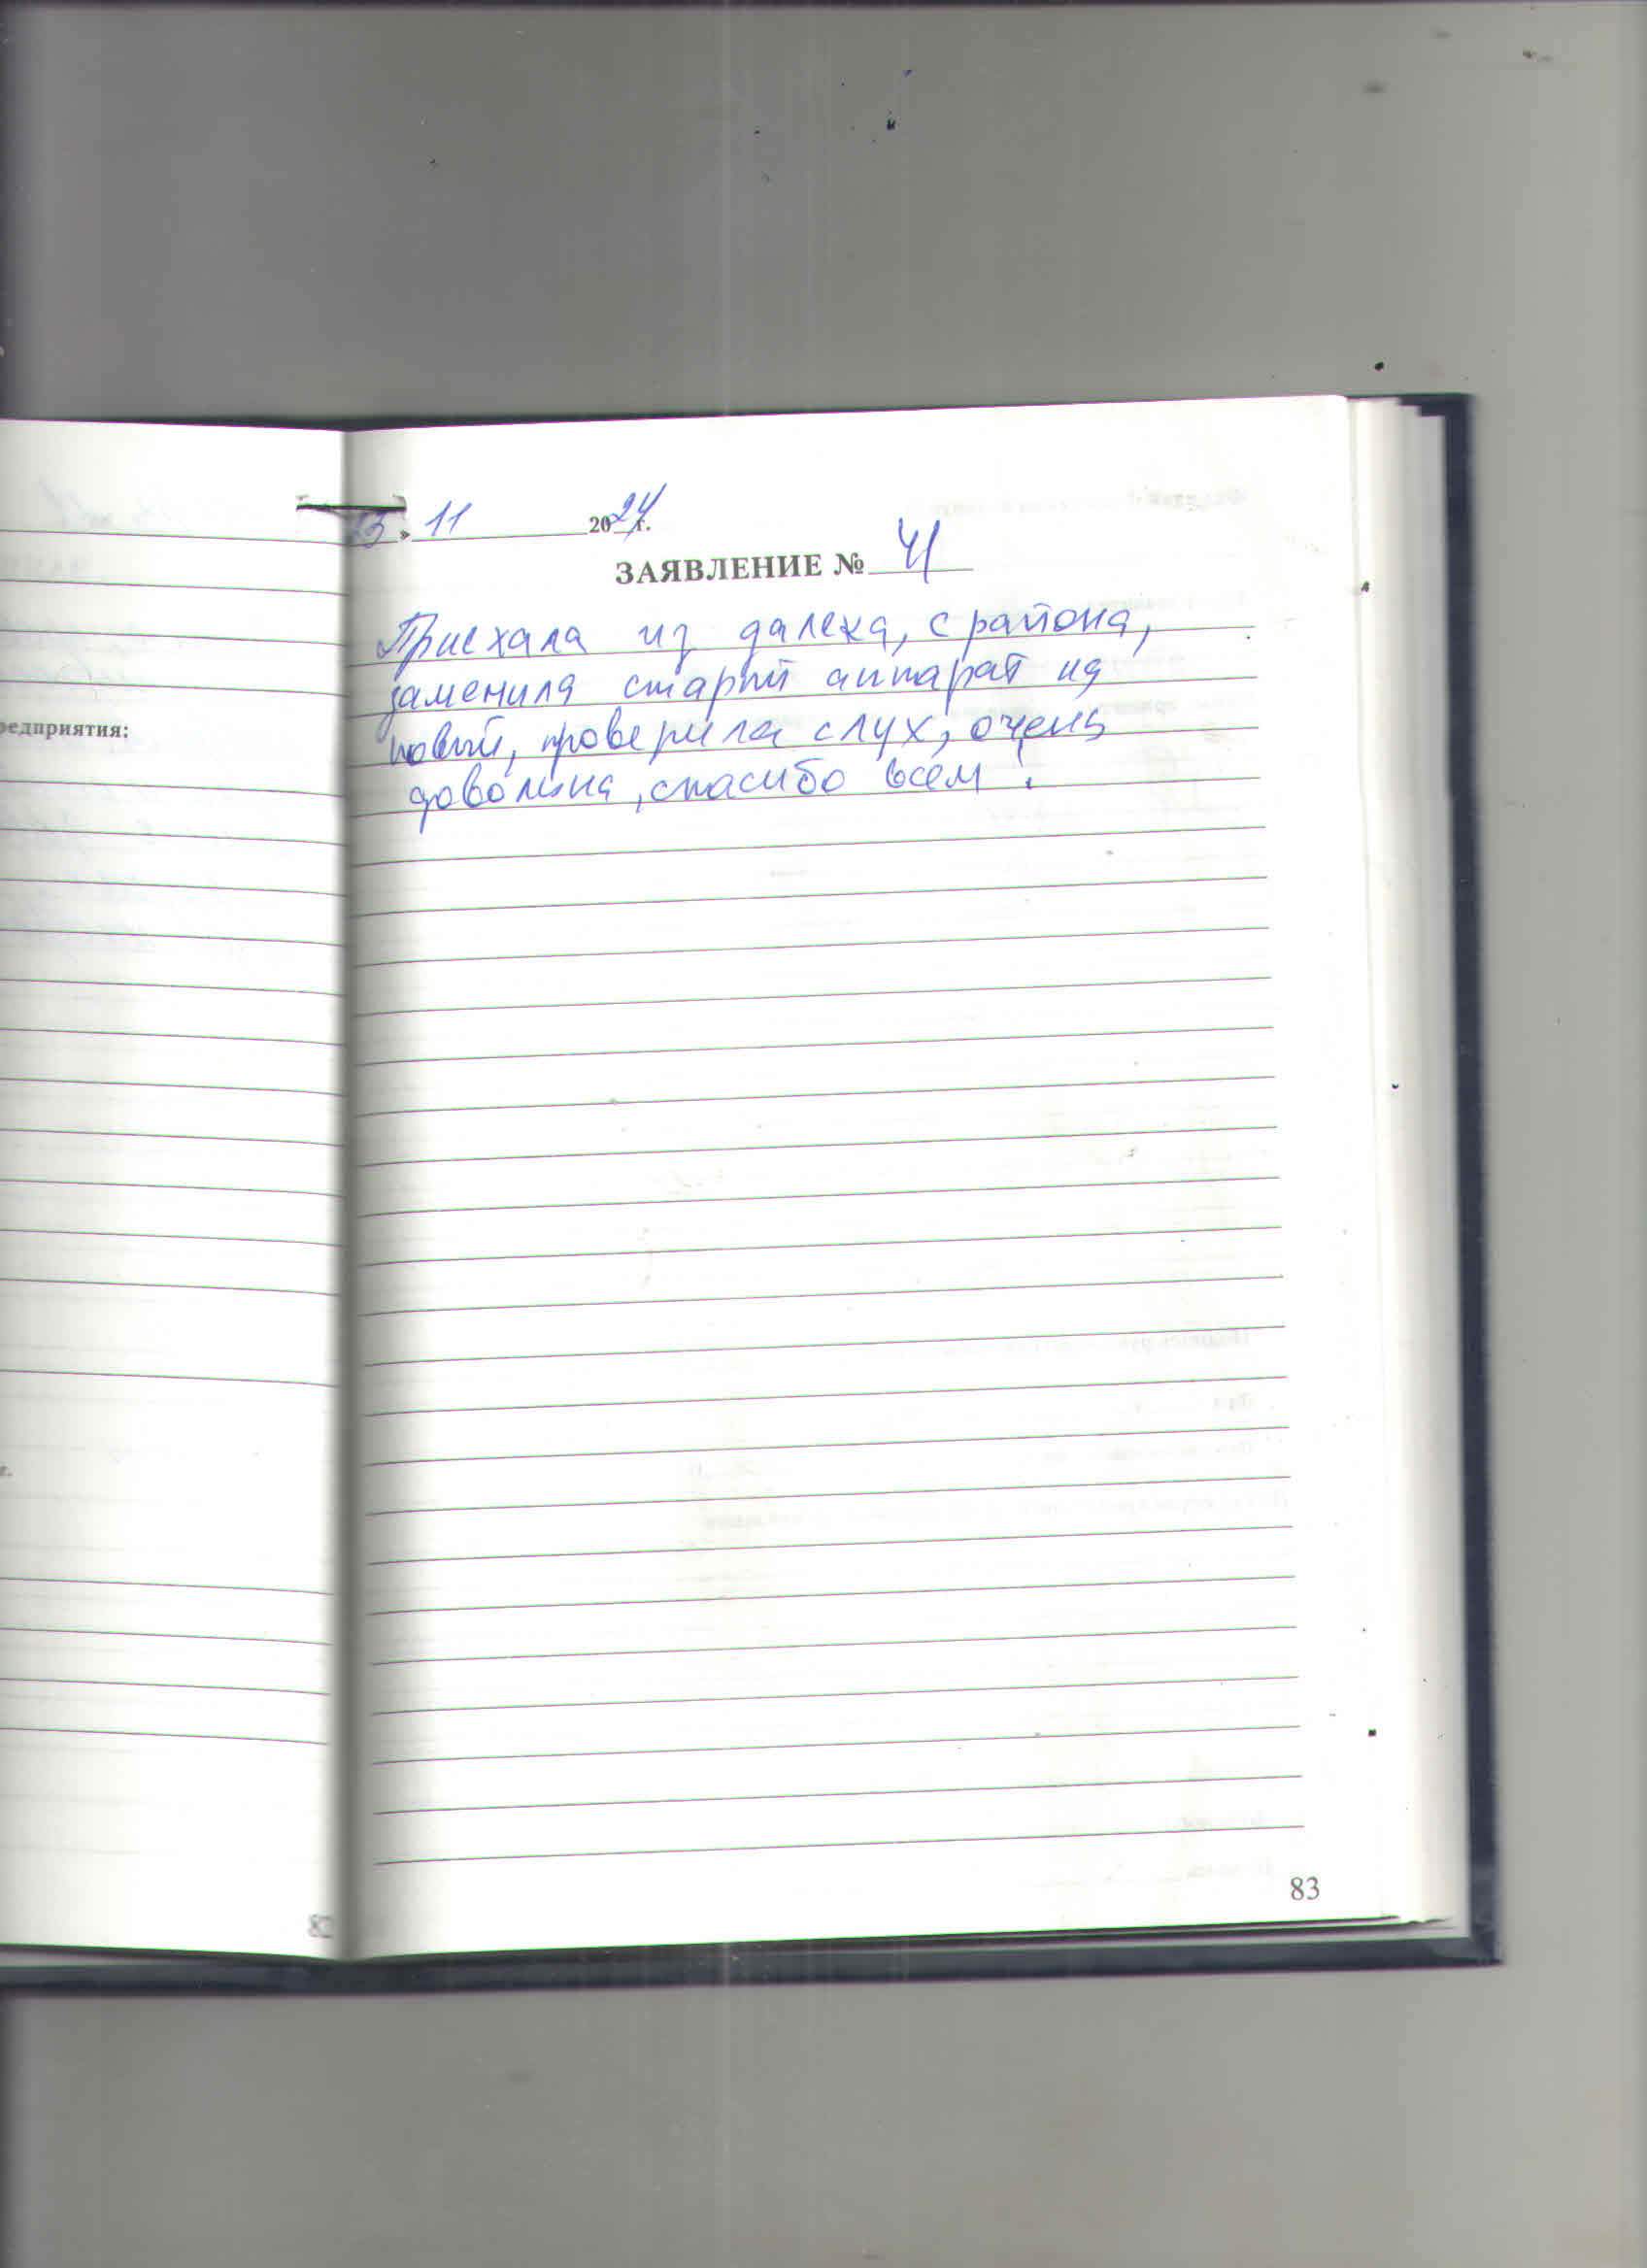 редприятия:
г.
82
13 » 11 2024 г.
ЗАЯВЛЕНИЕ № 41
Приехала из далека, с района,
заменила старый аппарат на
новый, проверила слух, очень
довольна, спасибо всем!
83